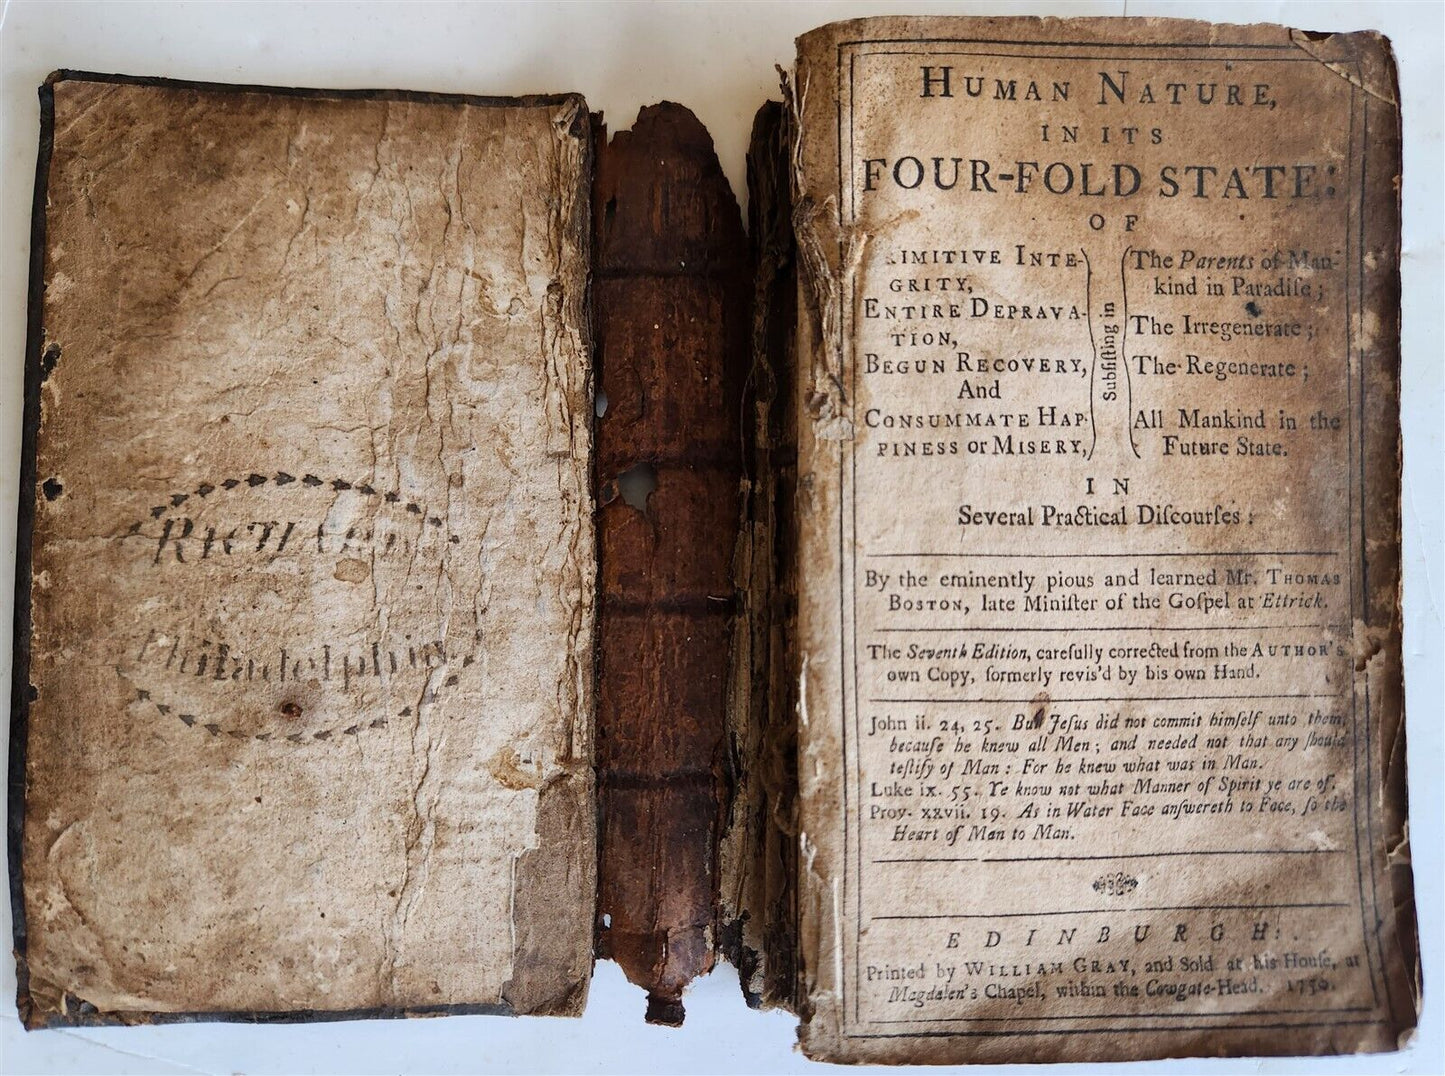 Philadelphia
HUMAN NATURE,
IN ITS
FOUR-FOLD STATE:
OF
IMITIVE INTE-
GRITY,
ENTIRE DEPRAVA-
TION,
BEGUN RECOVERY,
And
CONSUMMATE HAP-
PINESS or MISERY,
Subſiſting in
The Parents of Man-
kind in Paradiſe;
The Irregenerate;
The Regenerate;
All Mankind in the
Future State.
IN
Several Practical Diſcourſes:
By the eminently pious and learned Mr. THOMAS
BOSTON, late Miniſter of the Goſpel at Ettrick.
The Seventh Edition, carefully corrected from the AUTHOR's
own Copy, formerly revis'd by his own Hand.
John ii. 24, 25. But Jeſus did not commit himſelf unto them,
becauſe he knew all Men; and needed not that any ſhould
teſtify of Man: For he knew what was in Man.
Luke ix. 55. Ye know not what Manner of Spirit ye are of.
Prov. xxvii. 19. As in Water Face anſwereth to Face, ſo the
Heart of Man to Man.
EDINBURGH:
Printed by WILLIAM GRAY, and Sold at his Houſe, at
Magdalen's Chapel, within the Cowgate-Head.